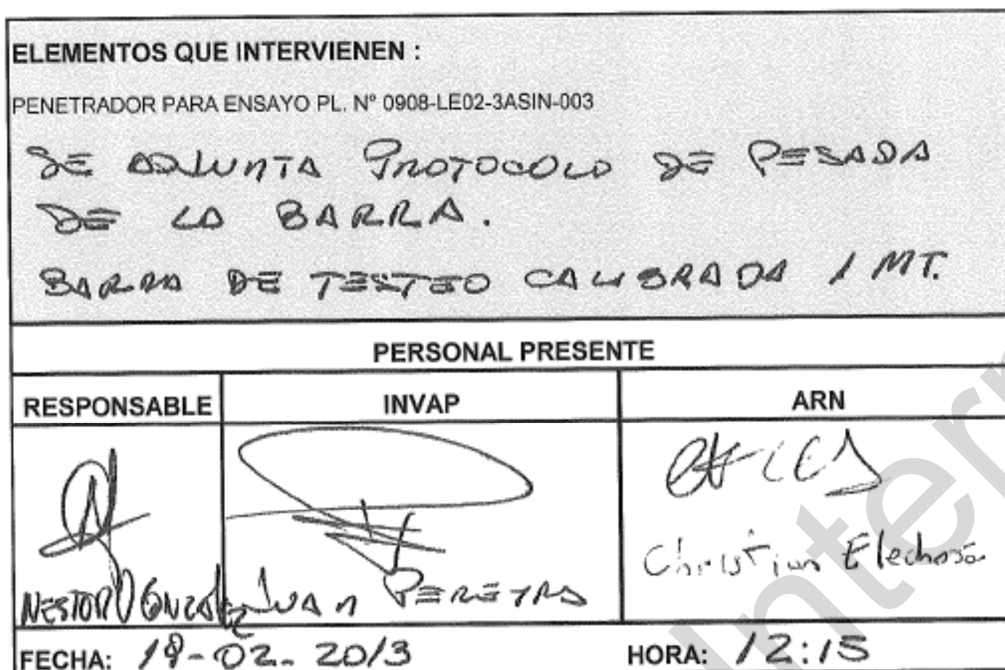 ELEMENTOS QUE INTERVIENEN :
PENETRADOR PARA ENSAYO PL. Nº 0908-LE02-3ASIN-003
SE ADJUNTA PROTOCOLO DE PESADA
DE LA BARRA.
BARRA DE TESTEO CALIBRADA 1 MT.
PERSONAL PRESENTE
RESPONSABLE INVAP ARN
Christian Elechosa
NESTOR GONZALEZ JUAN PEREYRA
FECHA: 19-02-2013 HORA: 12:15
Intern